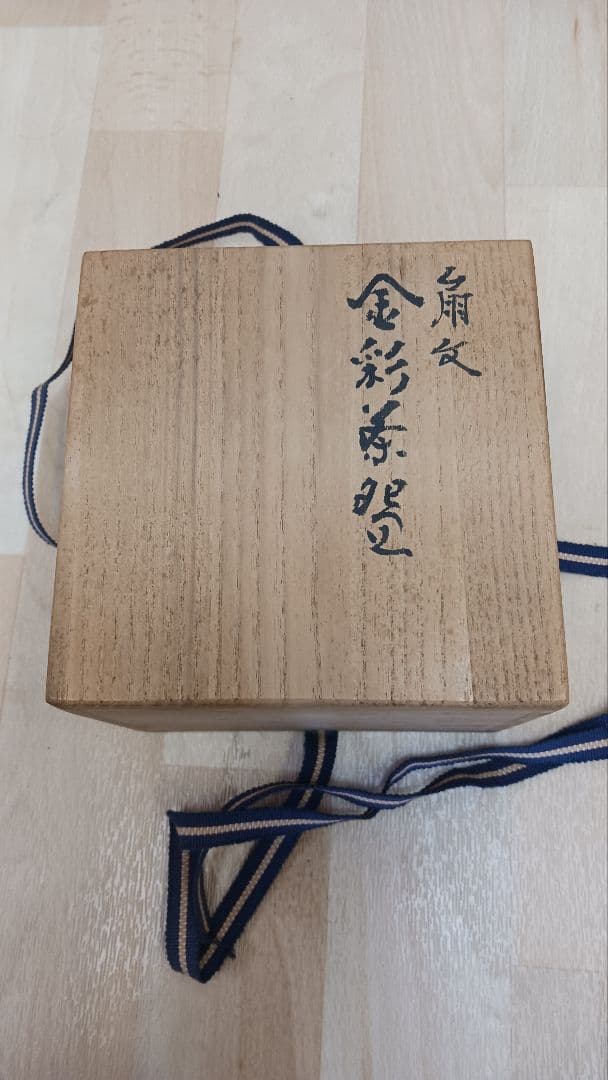 扇文
金彩茶盌